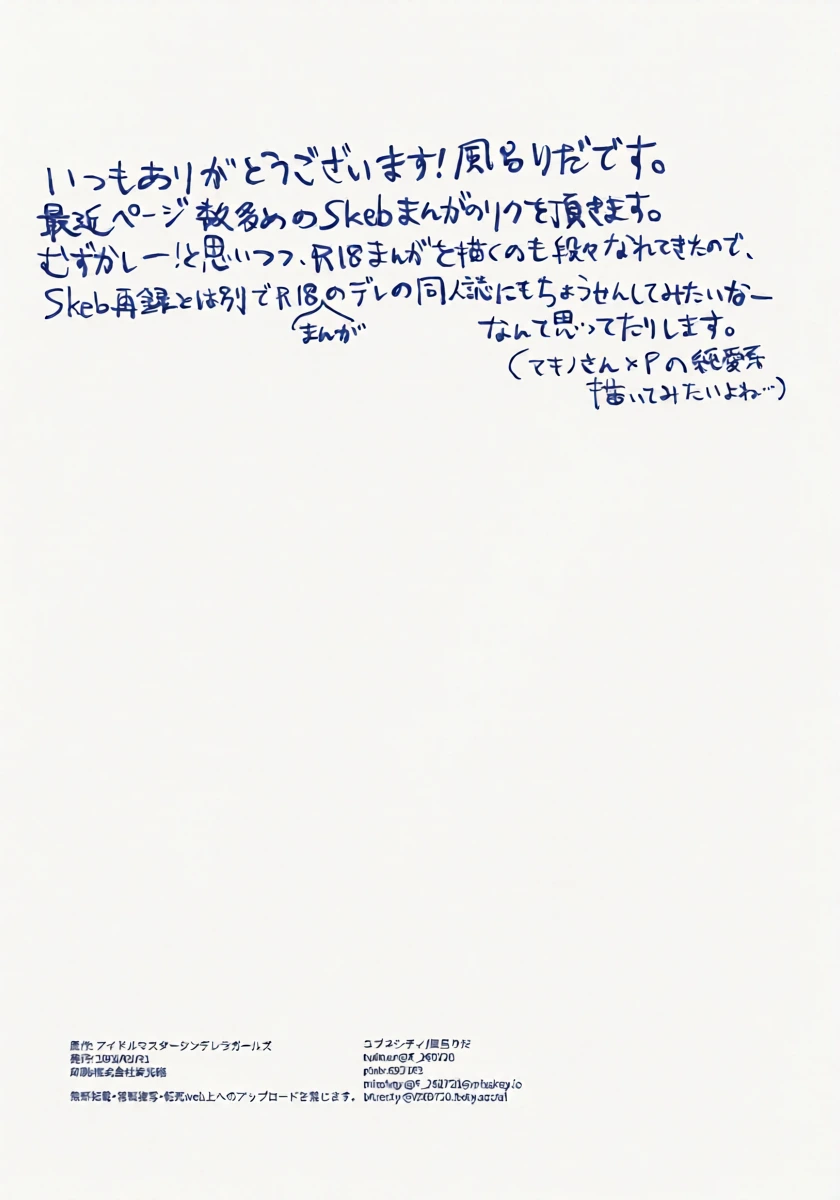 いつもありがとうございます!風呂りだです。
最近ページ数多めのSkebまんがのリクを頂きます。
むずかしー!と思いつつ、R18まんがを描くのも段々なれてきたので、
Skeb再録とは別でR18のデレの同人誌にもちょうせんしてみたいなー
まんが
なんて思ってたりします。
(マキノさん×Pの純愛系
描いてみたいよね…)
原作:アイドルマスターシンデレラガールズ
発行:
印刷:株式会社
無断転載・無断複写・転売web上へのアップロードを禁じます。
/風呂りだ